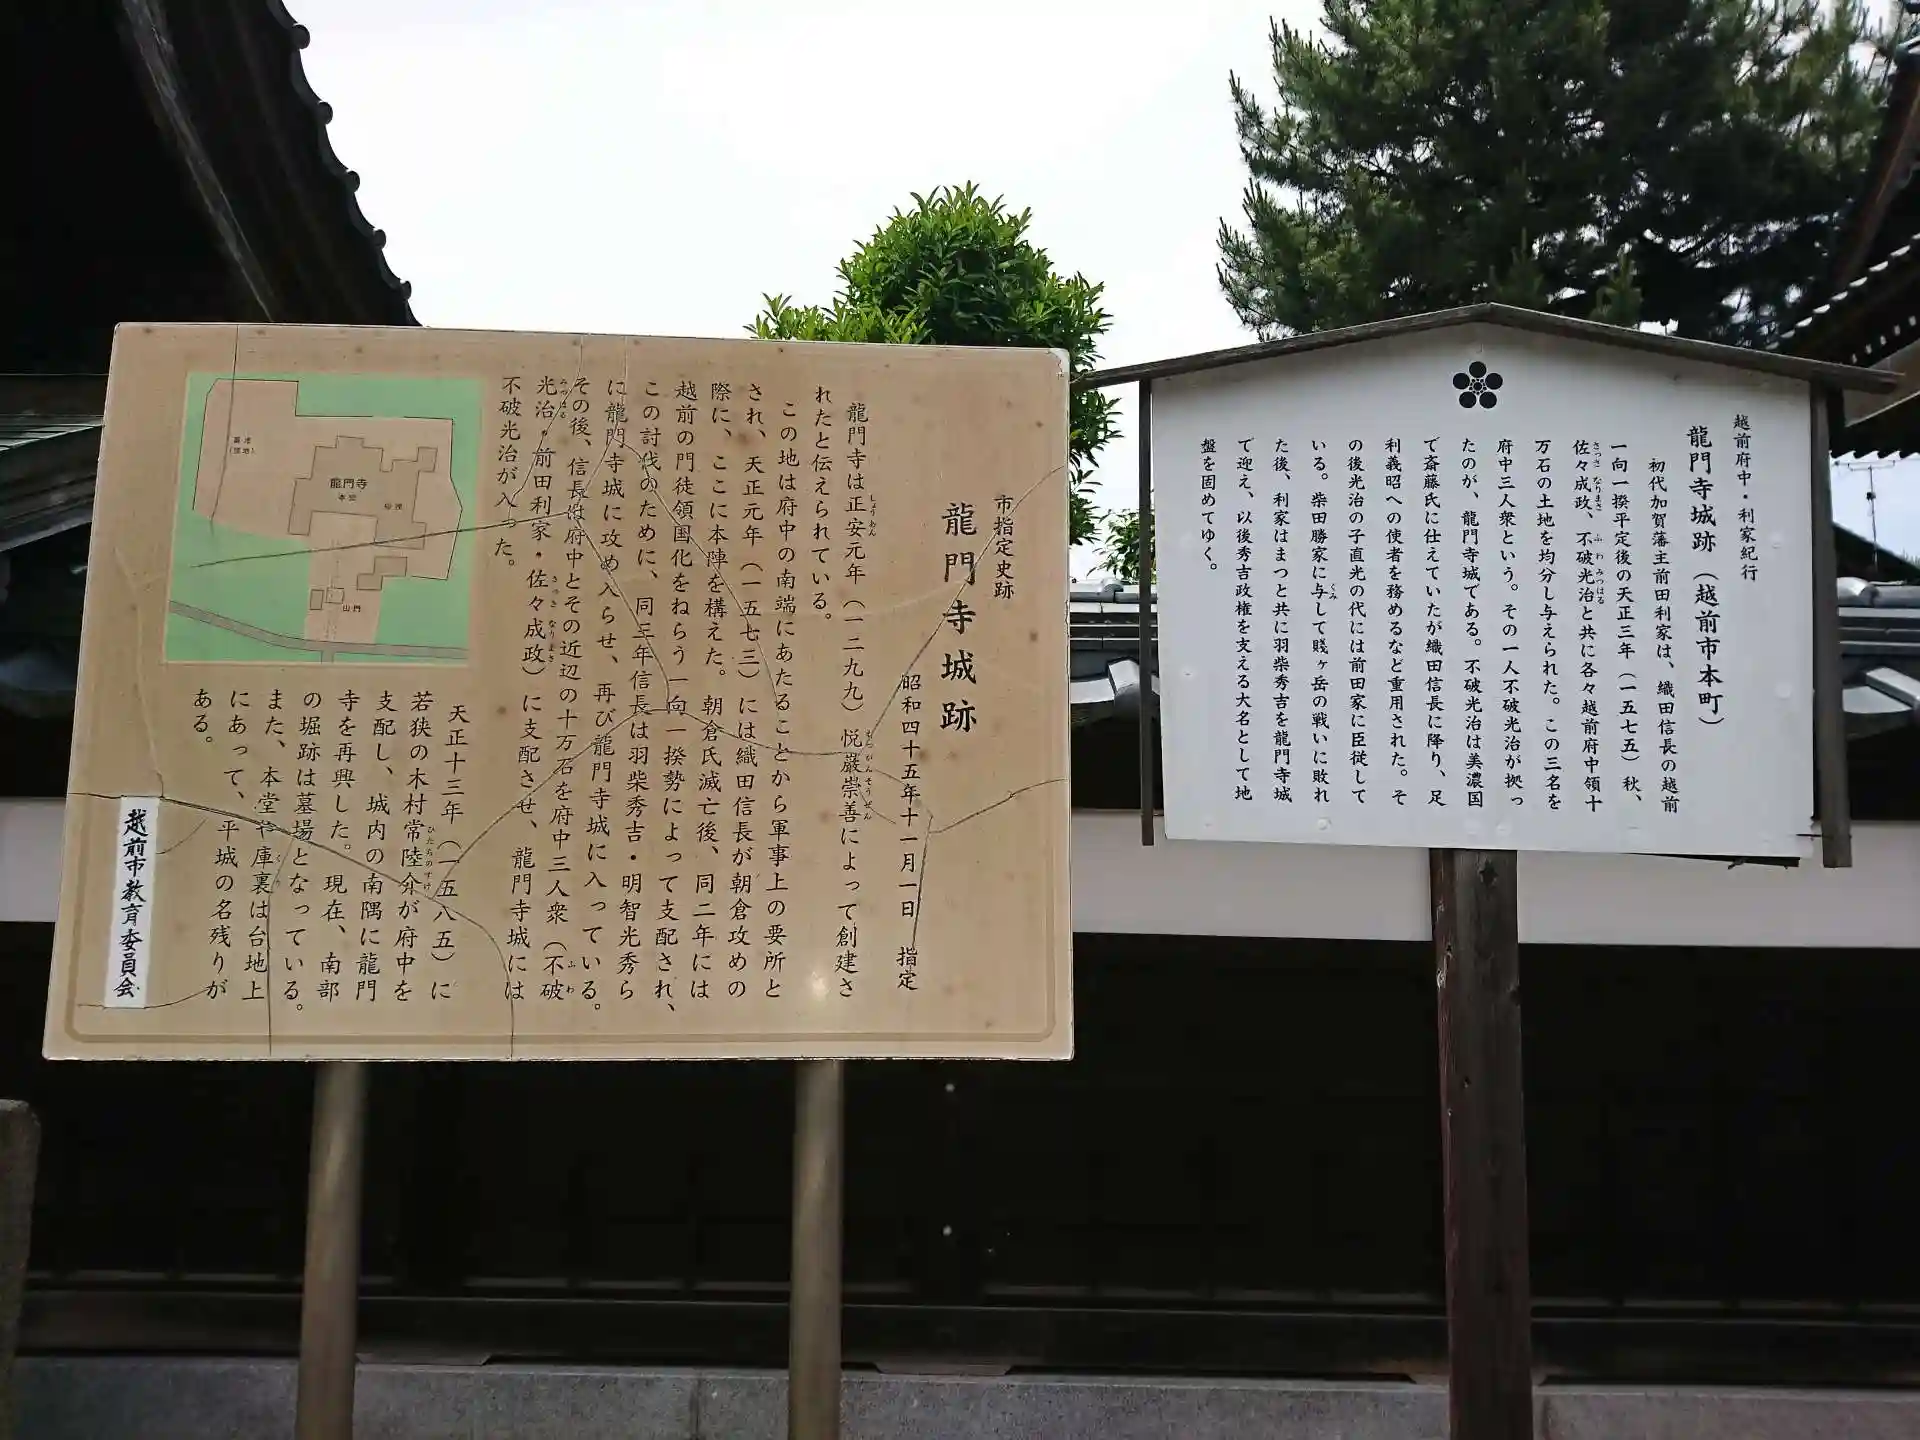 市指定史跡
龍門寺城跡
昭和四十五年十一月一日 指定
龍門寺は正安元年（一二九九）悦巌崇善によって創建さ
れたと伝えられている。
この地は府中の南端にあたることから軍事上の要所と
され、天正元年（一五七三）には織田信長が朝倉攻めの
際に、ここに本陣を構えた。朝倉氏滅亡後、同二年には
越前の門徒領国化をねらう一向一揆勢によって支配され、
この討伐のために、同三年信長は羽柴秀吉・明智光秀ら
に龍門寺城に攻め入らせ、再び龍門寺城に入っている。
その後、信長は府中とその近辺の十万石を府中三人衆（不破
光治・前田利家・佐々成政）に支配させ、龍門寺城には
不破光治が入った。
天正十三年（一五八五）に
若狭の木村常陸介が府中を
支配し、城内の南隅に龍門
寺を再興した。現在、南部
の堀跡は墓場となっている。
また、本堂や庫裏は台地上
にあって、平城の名残りが
ある。
越前市教育委員会
龍門寺
本堂
山門
越前府中・利家紀行
龍門寺城跡（越前市本町）
初代加賀藩主前田利家は、織田信長の越前
一向一揆平定後の天正三年（一五七五）秋、
佐々成政、不破光治と共に各々越前府中領十
万石の土地を均分し与えられた。この三名を
府中三人衆という。その一人不破光治が拠っ
たのが、龍門寺城である。不破光治は美濃国
で斎藤氏に仕えていたが織田信長に降り、足
利義昭への使者を務めるなど重用された。そ
の後光治の子直光の代には前田家に臣従して
いる。柴田勝家に与して賤ヶ岳の戦いに敗れ
た後、利家はまつと共に羽柴秀吉を龍門寺城
で迎え、以後秀吉政権を支える大名として地
盤を固めてゆく。